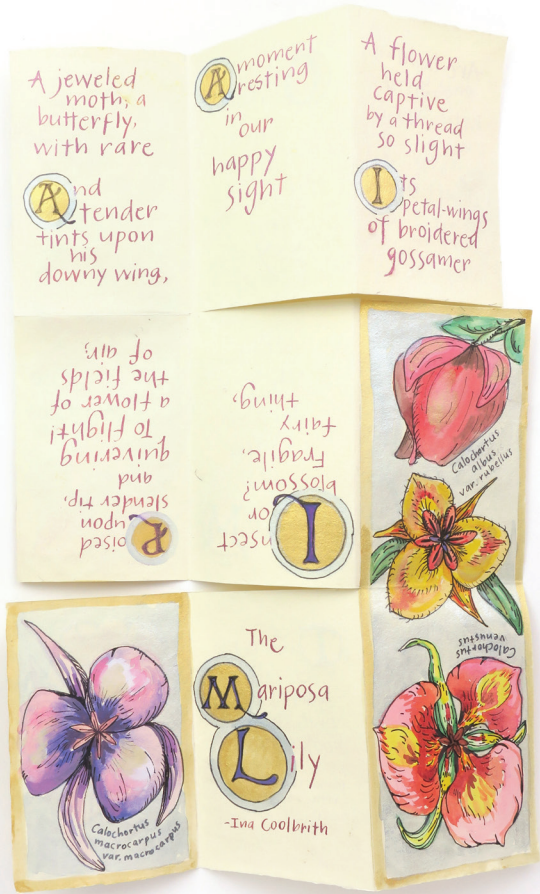 A jeweled
moth, a
butterfly,
with rare
And
tender
tints upon
his
downy wing,
A moment
resting
in
our
happy
sight
A flower
held
captive
by a thread
so slight
Its
petal-wings
of broidered
gossamer
Poised
upon
slender tip,
and
quivering
To flight!
a flower of
the fields
of air;
Insect
or
blossom?
Fragile,
fairy
thing,
Calochortus
albus
var. rubellus
Calochortus
venustus
Calochortus
macrocarpus
var. macrocarpus
The
Mariposa
Lily
-Ina Coolbrith